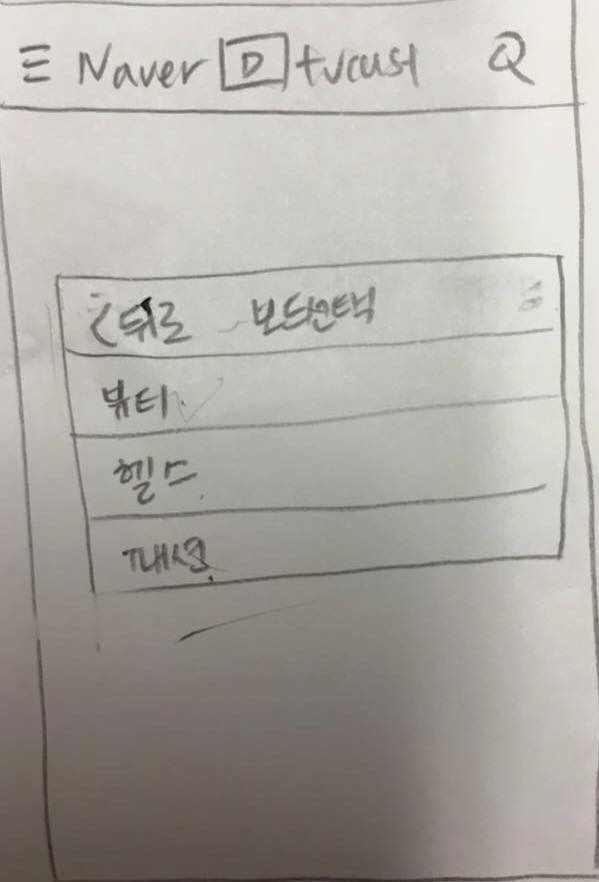 Naver D tvcast
<뒤로 보드선택
뷰티
헬스
패션